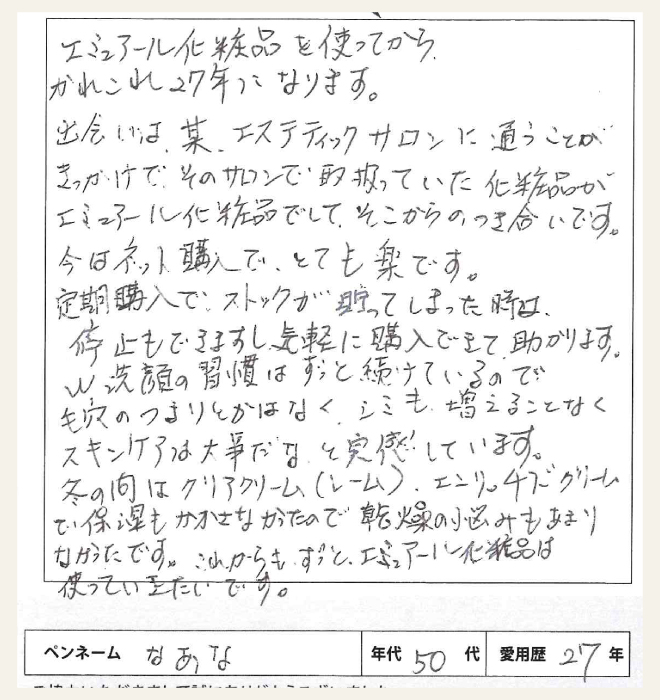 エミュアール化粧品を使ってから、
かれこれ27年になります。
出会いは、某、エステティックサロンに通うことが
きっかけで、そのサロンで取扱っていた化粧品が
エミュアール化粧品でして、そこからのつき合いです。
今はネット購入で、とても楽です。
定期購入で、ストックが貯ってしまった時は、
停止もできますし、気軽に購入できて助かります。
W洗顔の習慣はずっと続けているので
毛穴のつまりとかはなく、シミも増えることなく
スキンケアは大事だな、と実感しています。
冬の間はクリアクリーム(レーム)、エンリッチドクリーム
で保湿もかかさなかったので乾燥の悩みもあまり
なかったです。これからも、ずっと、エミュアール化粧品は
使っていきたいです。
ペンネーム なあな 年代 50 代 愛用歴 27 年